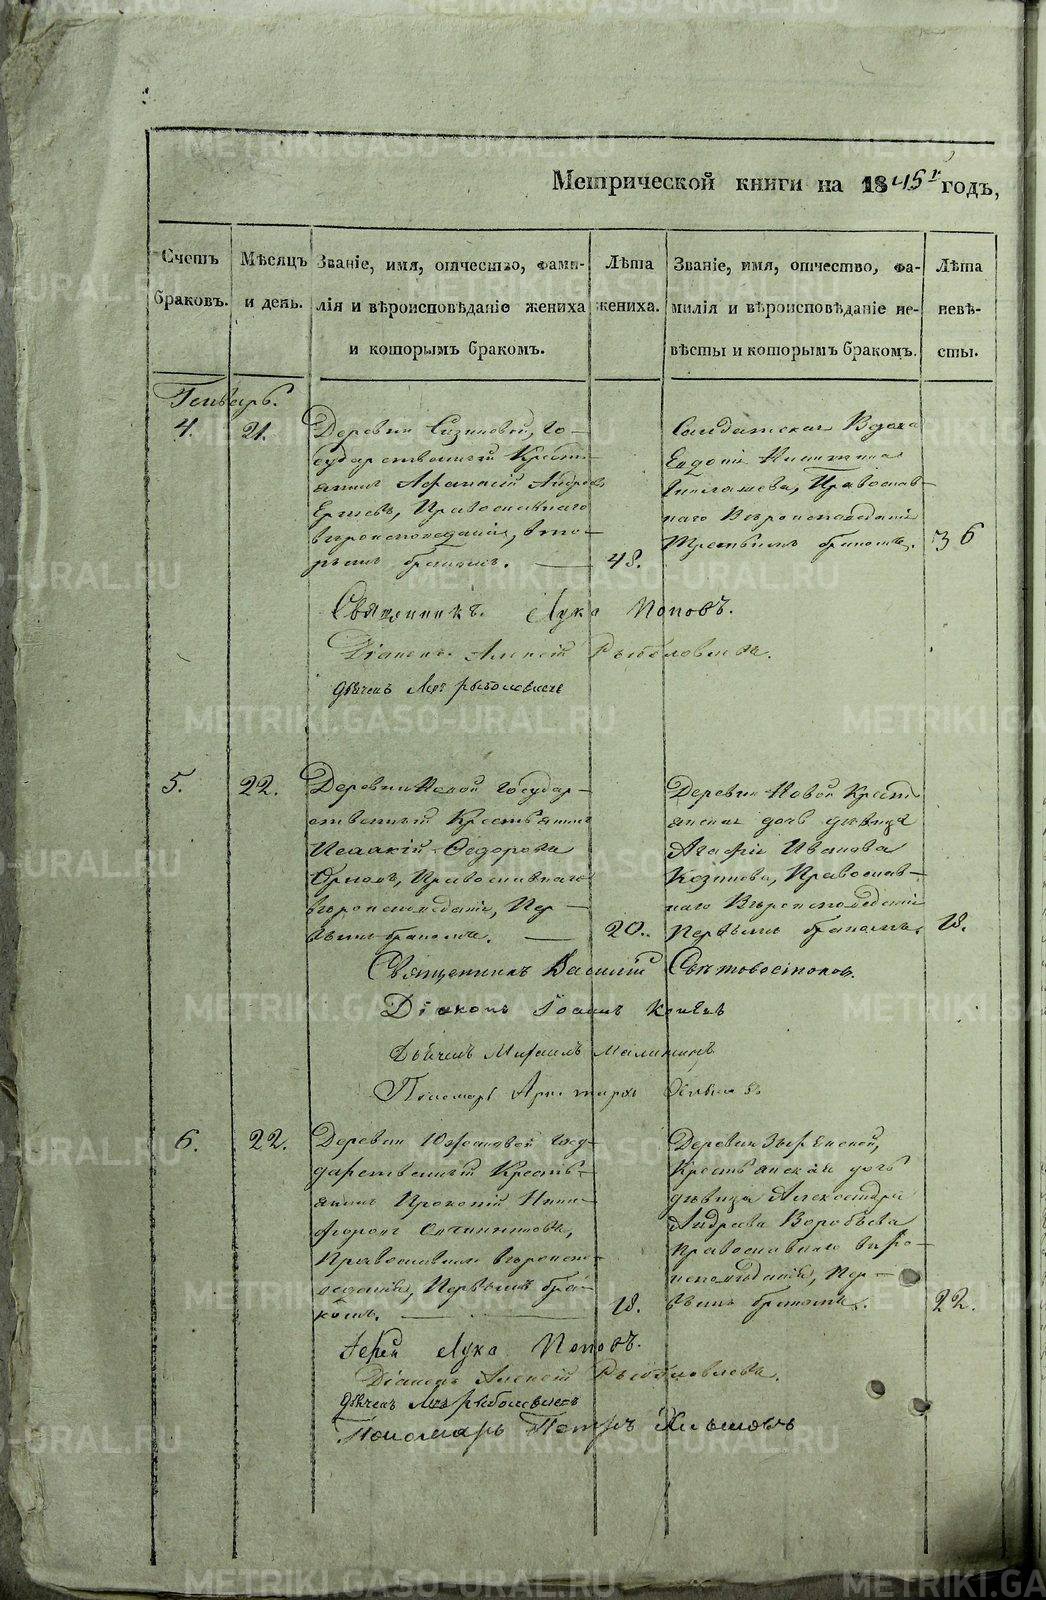 Метрической книги на 1845й годъ,
Счетъ браковъ.
Мѣсяцъ и день.
Званіе, имя, отчество, фами-
лія и вѣроисповѣданіе жениха
и которымъ бракомъ.
Лѣта
жениха.
Званіе, имя, отчество, фа-
милія и вѣроисповѣданіе не-
вѣсты и которымъ бракомъ.
Лѣта
невѣ-
сты.
Генварь.
4.
21.
Деревни го-
сударственный Крестъ-
янинъ Афанасій Андреевъ
Православнаго
вѣроисповеданія, вто-
рымъ бракомъ.
48.
Солдатская Вдова
Евдокія Никитина
Православ-
наго Вѣроисповеданія
Третьимъ бракомъ.
36
Священникъ Лука Поповъ.
Діаконъ Алексій Рыболовлевъ.
Дьячекъ Рыболовлевъ
5.
22.
Деревни Новой Государ-
ственный Крестьянинъ
Исаакій Федоровъ
Православнаго
вѣроисповеданія, Пер-
вымъ бракомъ.
20.
Деревни Новой Кресть-
янская дочь дѣвица
Агафія Иванова
Православ-
наго Вѣроисповеданія
Первымъ бракомъ.
18.
Священникъ Василій
Діаконъ Іоаннъ
Дьячекъ Михаилъ Малининъ
Пономарь
6.
22.
Деревни Госу-
дарственный Кресть-
янинъ Прокопій Ники-
форовъ Овчинниковъ,
Православнаго вѣроиспо-
веданія, Первымъ бра-
комъ.
18.
Деревни
Крестьянская дочь
дѣвица Александра
Андреева Воробьева
Православнаго вѣро-
исповѣданія, Пер-
вымъ бракомъ.
22.
Іерей Лука Поповъ.
Діаконъ Алексій Рыболовлевъ.
Дьячекъ Рыболовлевъ
Пономарь Петръ
METRIKI.GASO-URAL.RU